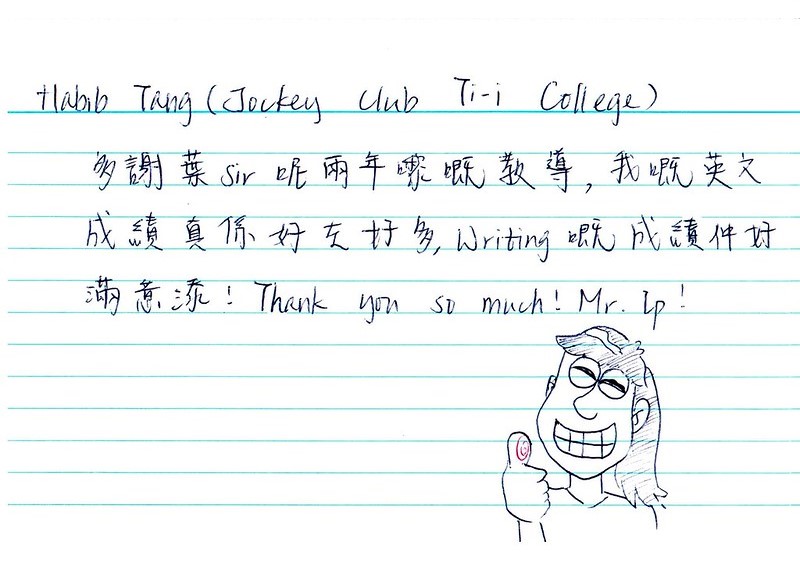 Habib Tang (Jockey Club Ti-i College)
多謝葉sir呢兩年嚟嘅教導,我嘅英文
成績真係好左好多,Writing嘅成績仲好
滿意添!Thank you so much! Mr. Ip!